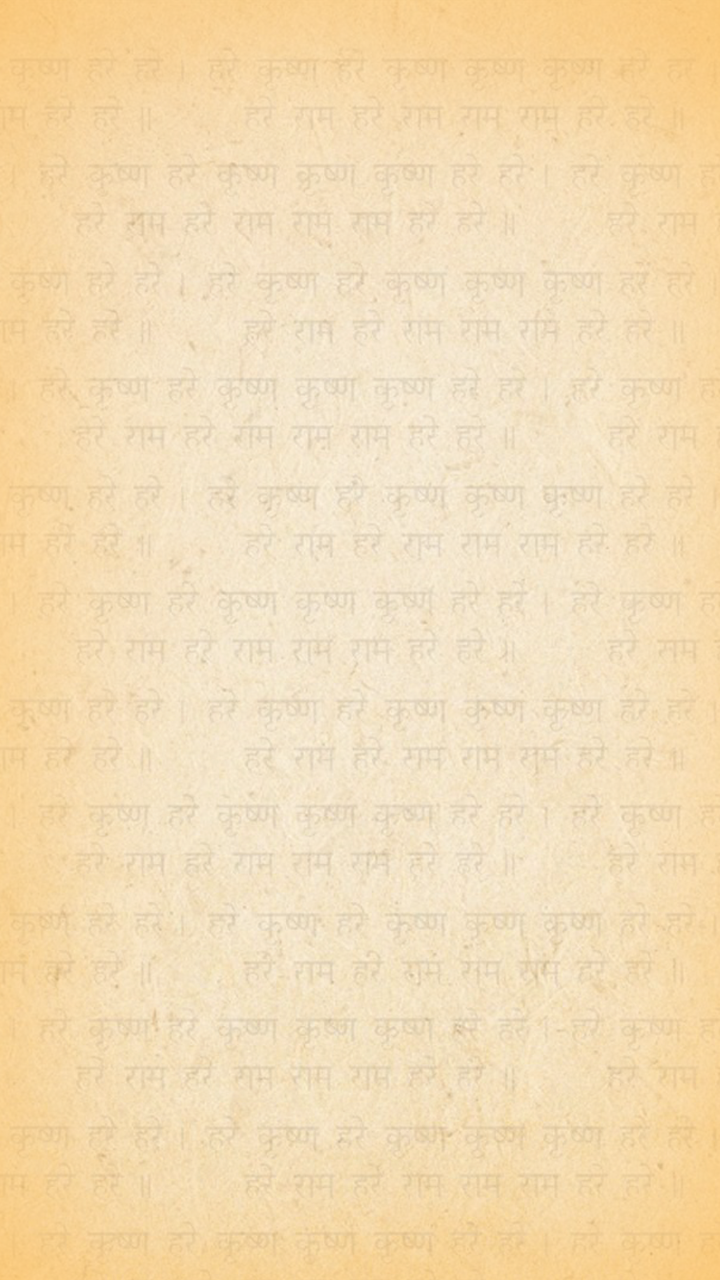 कृष्ण हरे हरे । हरे कृष्ण हरे कृष्ण कृष्ण कृष्ण हरे हरे ।
हरे हरे ॥ हरे राम हरे राम राम राम हरे हरे ॥
। हरे कृष्ण हरे कृष्ण कृष्ण कृष्ण हरे हरे । हरे कृष्ण
हरे राम हरे राम राम राम हरे हरे ॥ हरे राम
कृष्ण हरे हरे । हरे कृष्ण हरे कृष्ण कृष्ण कृष्ण हरे हरे ।
हरे हरे ॥ हरे राम हरे राम राम राम हरे हरे ॥
॥ हरे कृष्ण हरे कृष्ण कृष्ण कृष्ण हरे हरे । हरे कृष्ण
हरे राम हरे राम राम राम हरे हरे ॥ हरे राम
कृष्ण हरे हरे । हरे कृष्ण हरे कृष्ण कृष्ण कृष्ण हरे हरे ।
हरे हरे ॥ हरे राम हरे राम राम राम हरे हरे ॥
। हरे कृष्ण हरे कृष्ण कृष्ण कृष्ण हरे हरे । हरे कृष्ण
हरे राम हरे राम राम राम हरे हरे ॥ हरे राम
कृष्ण हरे हरे । हरे कृष्ण हरे कृष्ण कृष्ण कृष्ण हरे हरे ।
हरे हरे ॥ हरे राम हरे राम राम राम हरे हरे ॥
। हरे कृष्ण हरे कृष्ण कृष्ण कृष्ण हरे हरे । हरे कृष्ण
हरे राम हरे राम राम राम हरे हरे ॥ हरे राम
कृष्ण हरे हरे । हरे कृष्ण हरे कृष्ण कृष्ण कृष्ण हरे हरे ।
हरे हरे ॥ हरे राम हरे राम राम राम हरे हरे ॥
। हरे कृष्ण हरे कृष्ण कृष्ण कृष्ण हरे हरे । हरे कृष्ण
हरे राम हरे राम राम राम हरे हरे ॥ हरे राम
कृष्ण हरे हरे । हरे कृष्ण हरे कृष्ण कृष्ण कृष्ण हरे हरे ।
हरे हरे ॥ हरे राम हरे राम राम राम हरे हरे ॥
हरे कृष्ण हरे कृष्ण कृष्ण कृष्ण हरे हरे । हरे कृष्ण